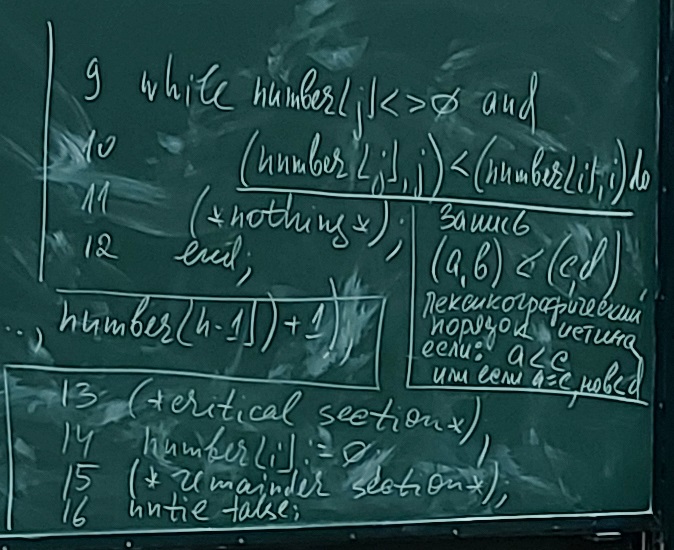 9 while number[j]<>0 and
10 (number[j],j)<(number[i],i) do
11 (*nothing*);
12 end;
..., number(n-1])+1);
Запись
(a,b) < (c,d)
лексикографический
порядок истина
если: a<c
или если a=c, но b<d
13 (*critical section*);
14 number[i]:=0
15 (*remainder section*);
16 until false;